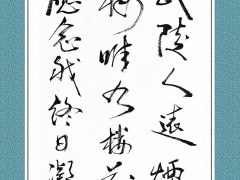 武陵人遠煙
樓唯有樓前
應念我終日凝